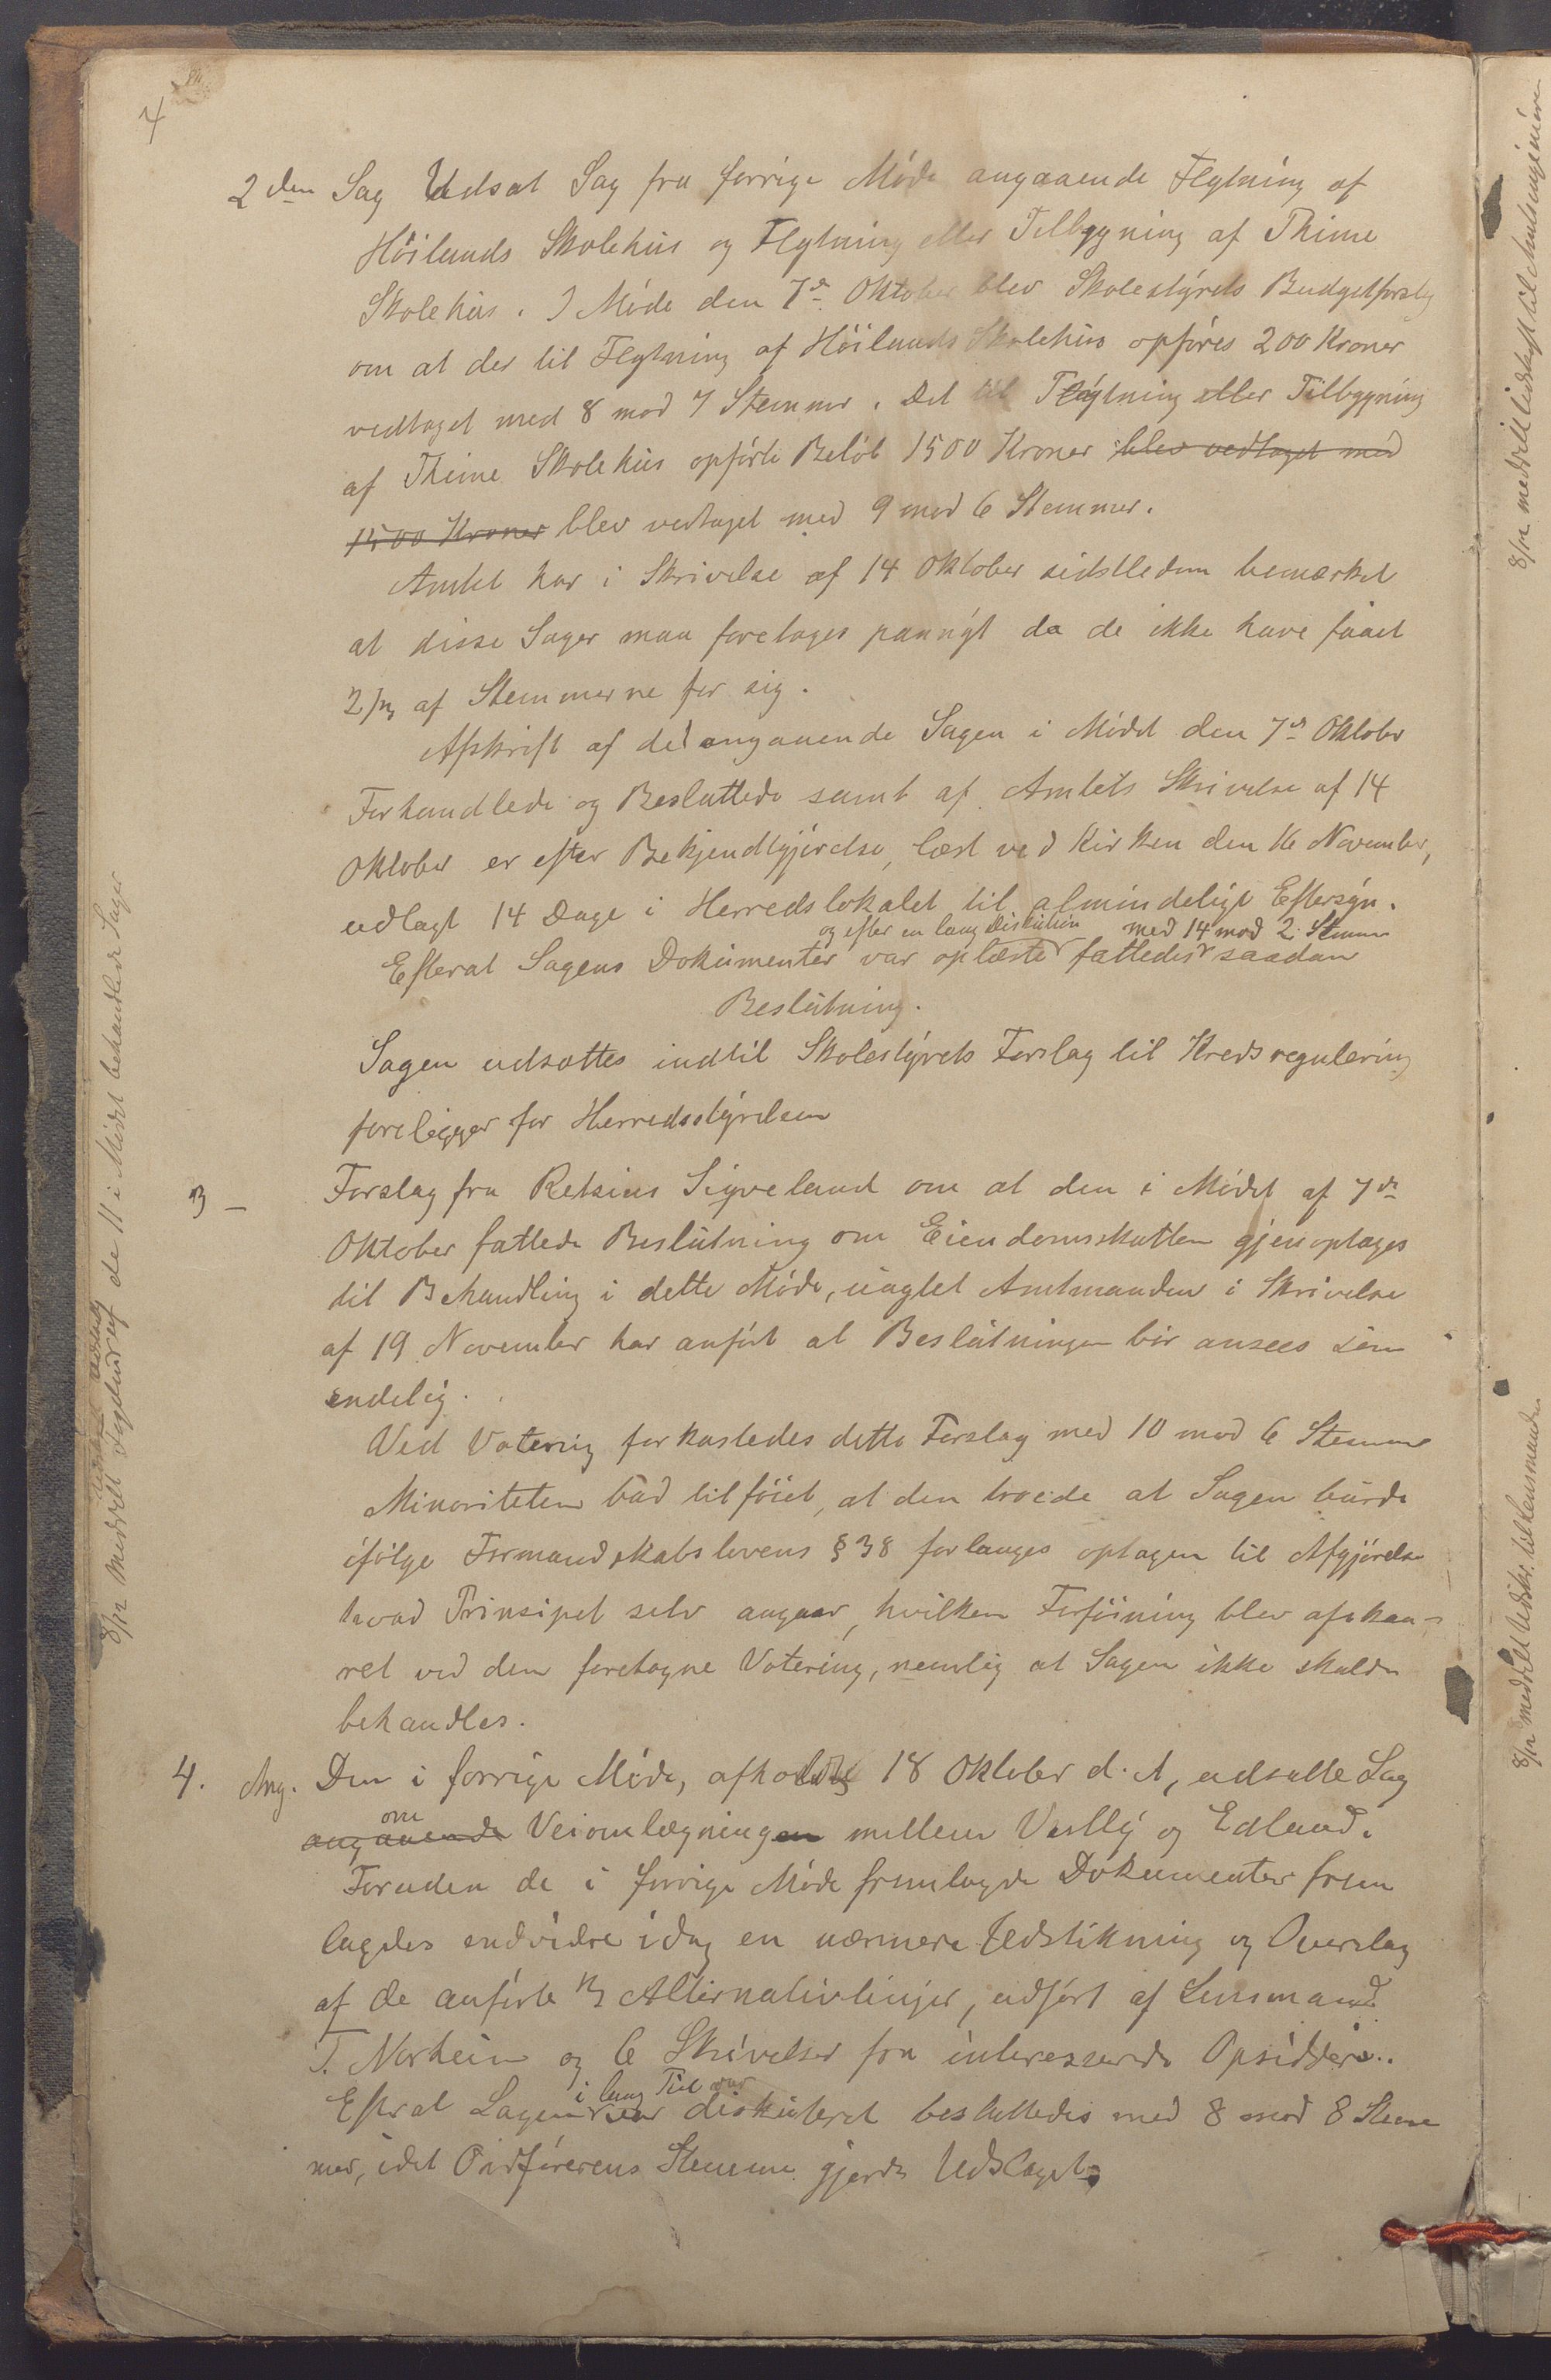 4
2den Sag Udsat Sag fra forrige Møde angaaende Flytning af
Höilands Skolehus og Flytning eller Tilbygning af Thime
Skolehus. I Møde den 7de Oktober blev Skolestyrets Budgetforslag
om at der til Flytning af Höilands Skolehus opføres 200 Kroner
vedtaget med 8 mod 7 Stemmer. Det til Flytning eller Tilbygning
af Thime Skolehus opførte Beløb 1500 Kroner blev vedtaget med
1500 Kroner blev vedtaget med 9 mod 6 Stemmer.
Amtet har i Skrivelse af 14 Oktober sidstleden bemærket
at disse Sager maa foretages paanyt da de ikke have faaet
2/3 af Stemmerne for sig.
Afskrift af det angaaende Sagen i Mødet den 7de Oktober
Forhandlede og Besluttede samt af Amtets Skrivelse af 14
Oktober er efter Bekjendtgjørelse, læst ved Kirken den 16 November,
udlagt 14 Dage i Herredslokalet til almindeligt Eftersyn.
og efter en lang Diskution med 14 mod 2 Stemmer
Efterat Sagens Dokumenter var oplæste fattedes saadan
Beslutning.
Sagen udsættes indtil Skolestyrets Forslag til Kredsregulering
foreligger for Herredsstyrelsen
3 – Forslag fra Retsius Sigveland om at den i Mødet af 7de
Oktober fattede Beslutning om Eiendomsskatten gjenoptages
til Behandling i dette Møde, uagtet Amtmanden i Skrivelse
af 19 November har anført at Beslutningen bør ansees som
endelig.
Ved Votering forkastedes dette Forslag med 10 mod 6 Stemmer
Minoriteten bad tilføiet, at den troede at Sagen burde
ifølge Formandskabslovens § 38 forlanges optagen til Afgjørelse
hvad Prinsipet selv angaar, hvilken Forføining blev afskaa-
ret ved den foretagne Votering, nemlig at Sagen ikke skulde
behandles.
4. Ang. Den i forrige Møde, afholdt 18 Oktober d. A, udsatte Sag
om
angaaende Veiomlægningen mellem Vestly og Edland.
Foruden de i forrige Møde fremlagde Dokumenter frem
lagdes endvidere idag en nærmere Udstikning og Overslag
af de anførte 3 Alternativlinjer, udført af Lensmand
T. Norheim og 6 Skrivelser fra interesserede Opsiddere.
i lang Tid var
Efterat Sagen var diskuteret besluttedes med 8 mod 8 Stem
mer, idet Ordførerens Stemme gjorde Udslaget:
8/12 meddelt Fogden af de 11 i Mødet behandlede Sager
8/12 meddelt Udskrift til Amtsingeniøren
8/12 meddelt Udskr. til Lensmanden